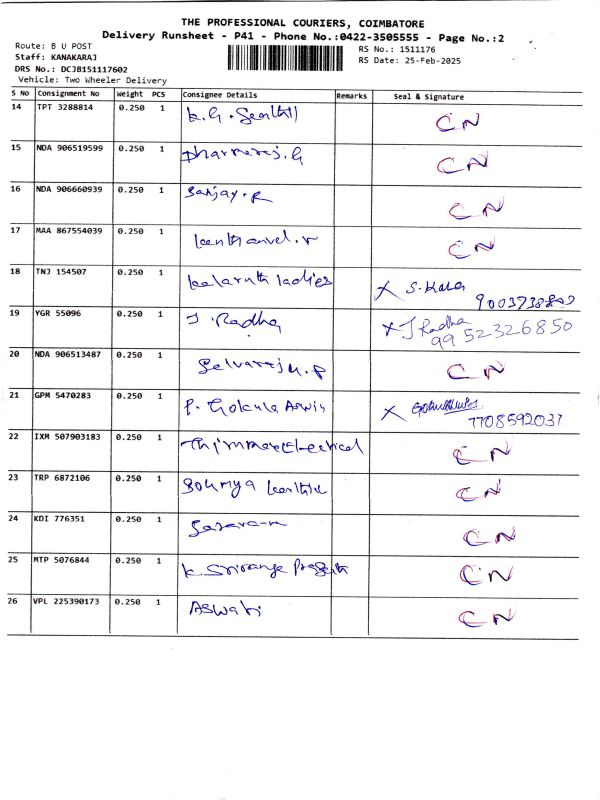 THE PROFESSIONAL COURIERS, COIMBATORE
Delivery Runsheet - P41 - Phone No.:0422-3505555 - Page No.:2
Route: B U POST
Staff: KANAKARAJ
DRS No.: DCJB151117602
Vehicle: Two Wheeler Delivery
RS No.: 1511176
RS Date: 25-Feb-2025
S No Consignment No Weight PCS Consignee Details Remarks Seal & Signature
14 TPT 3288814 0.250 1 K.G. CN
15 NDA 906519599 0.250 1 Dharmaraj.G CN
16 NDA 906660939 0.250 1 Sanjay.R CN
17 MAA 867554039 0.250 1 CN
18 TNJ 154507 0.250 1 ladies X S. Kala
19 YGR 55096 0.250 1 J. Radha X J Radha
99 52326850
20 NDA 906513487 0.250 1 Selvaraj CN
21 GPM 5470283 0.250 1 P. Gokula Aswin X
7708592037
22 IXM 507903183 0.250 1 Electrical CN
23 TRP 6872106 0.250 1 Sowmya CN
24 KDI 776351 0.250 1 CN
25 MTP 5076844 0.250 1 K CN
26 VPL 225390173 0.250 1 Aswati CN